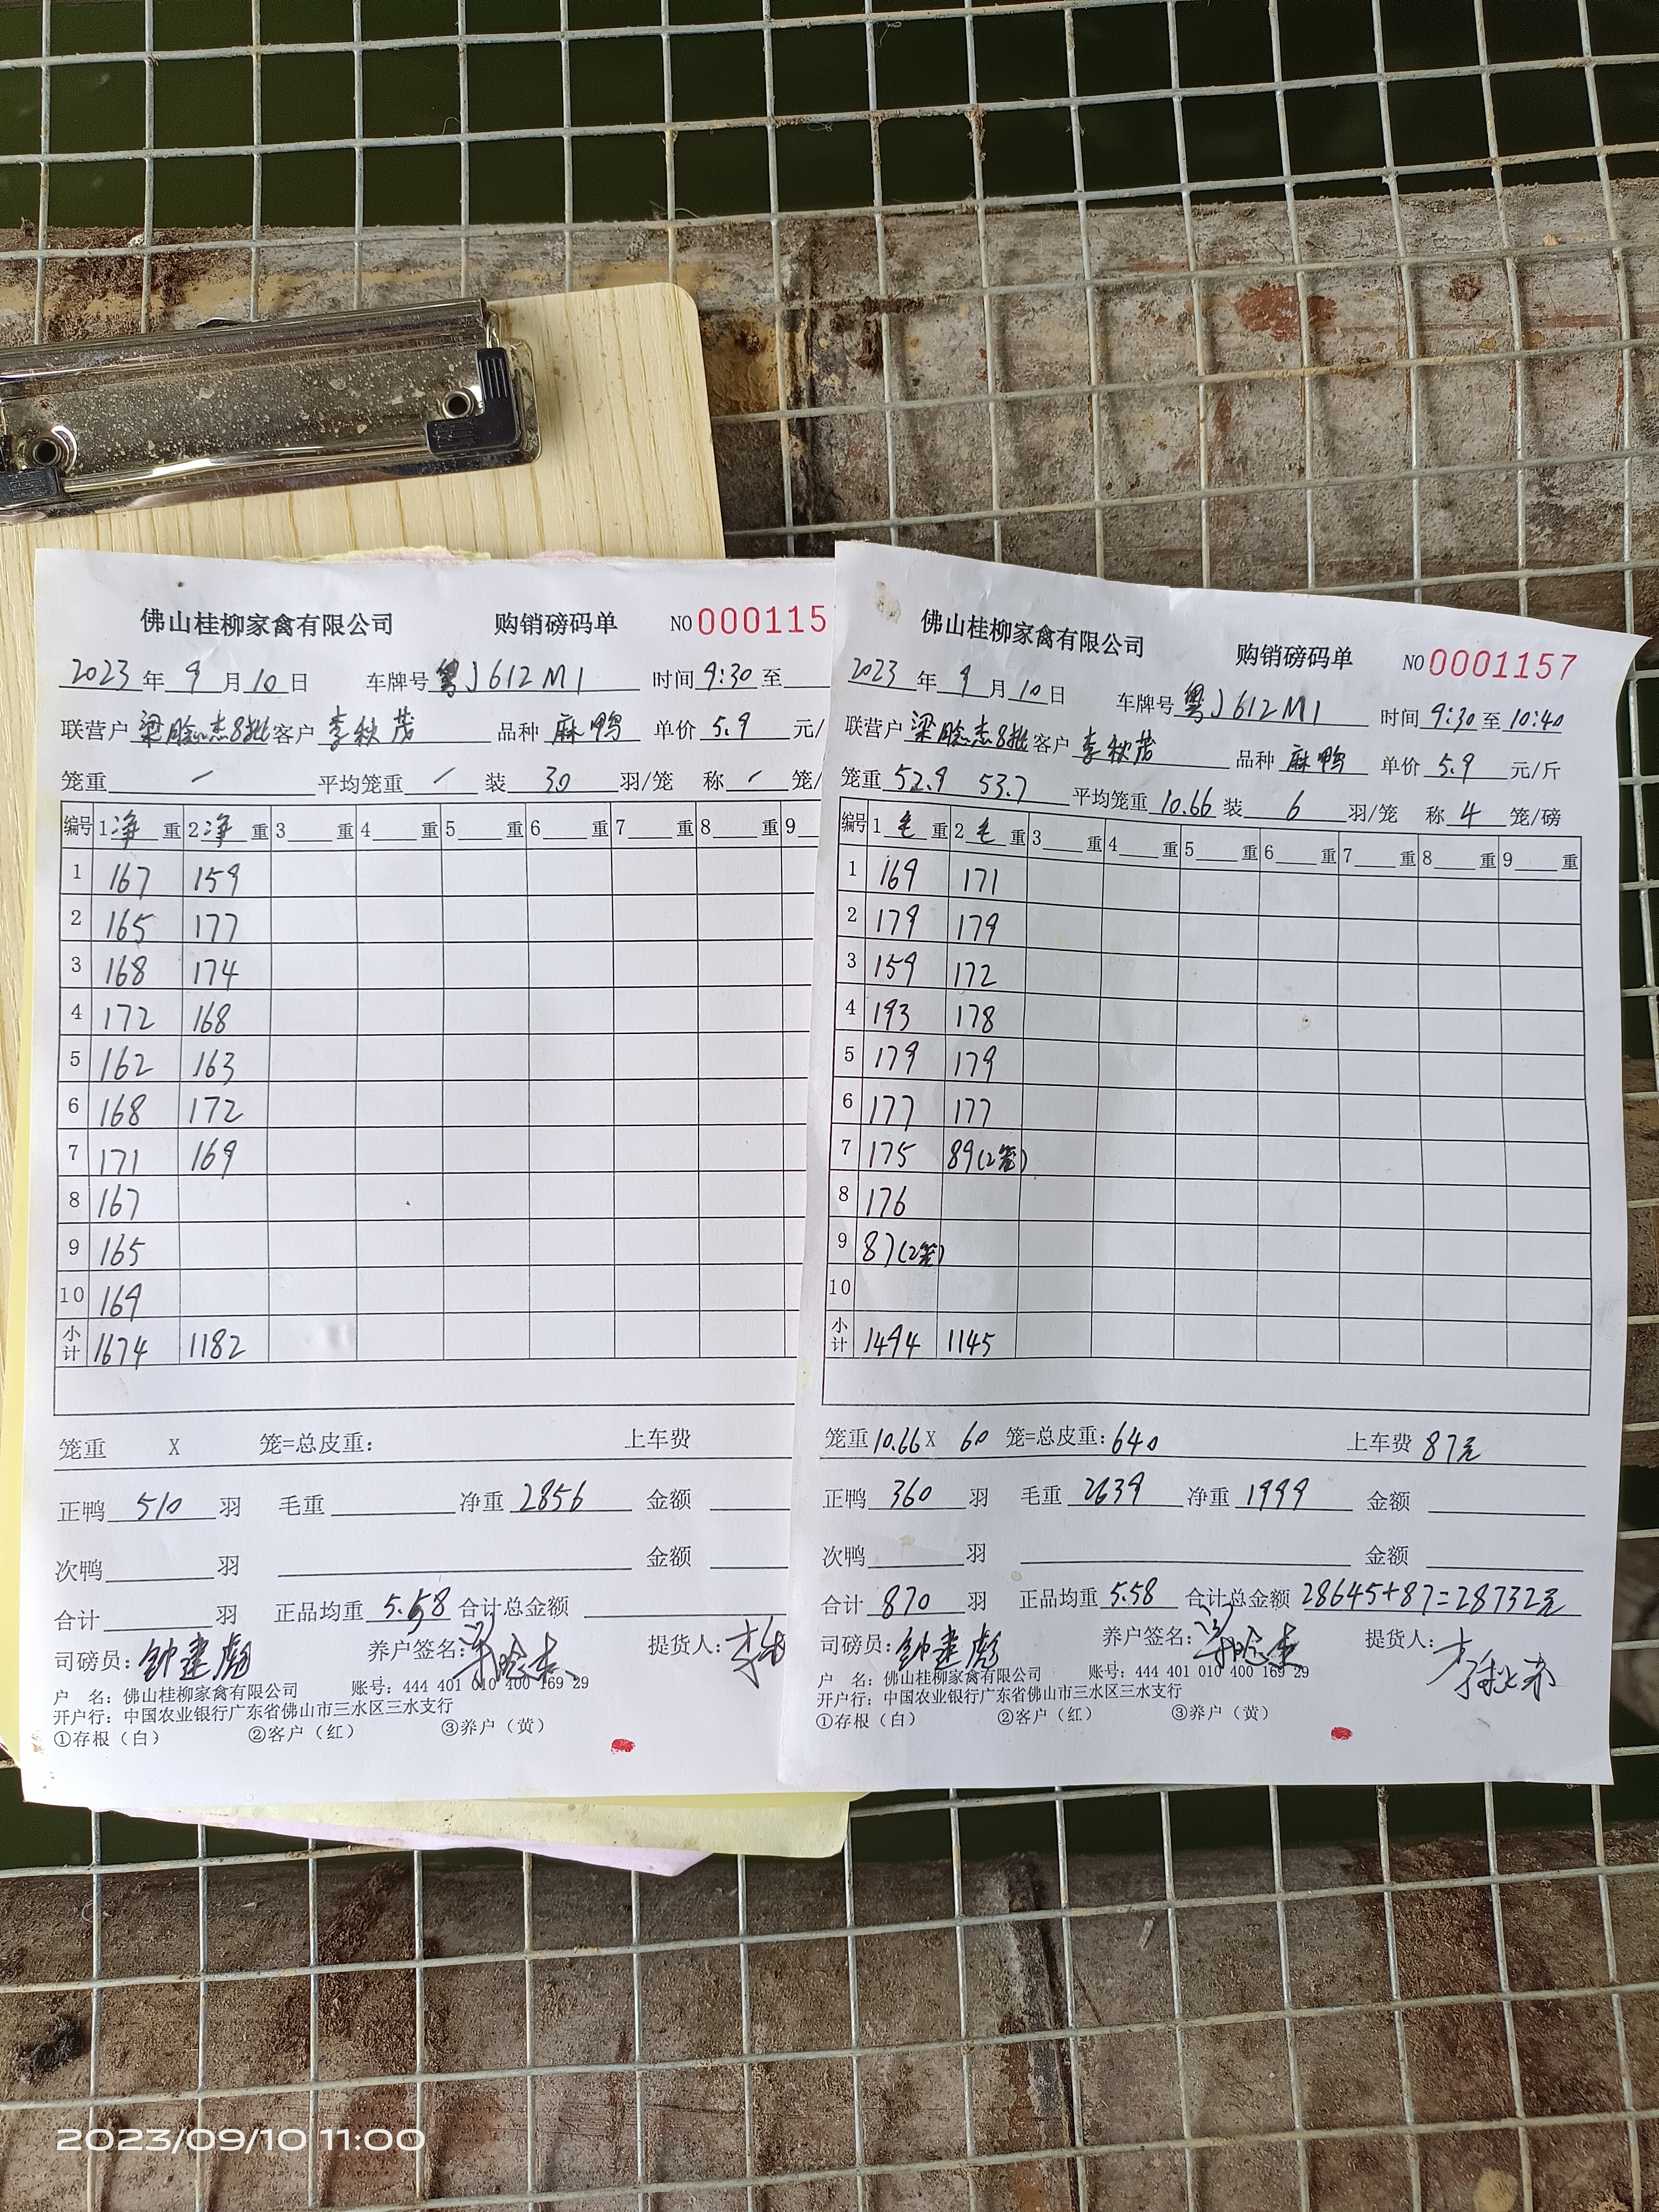 佛山桂柳家禽有限公司 购销磅码单 NO 000115
2023年9月10日 车牌号 粤J612M1 时间 9:30 至
联营户 梁晗杰8批 客户 李秋茂 品种 麻鸭 单价 5.9 元/
笼重 / 平均笼重 / 装 30 羽/笼 称 / 笼/
编号 1净重 2净重 3 重 4 重 5 重 6 重 7 重 8 重 9
1 167 159
2 165 177
3 168 174
4 172 168
5 162 163
6 168 172
7 171 169
8 167
9 165
10 169
小计 1674 1182
笼重 X 笼=总皮重: 上车费
正鸭 510 羽 毛重 净重 2856 金额
次鸭 羽 金额
合计 羽 正品均重 5.58 合计总金额
司磅员: 钟建彪 养户签名: 提货人:
户 名: 佛山桂柳家禽有限公司 账号: 444 401 010 400 169 29
开户行: 中国农业银行广东省佛山市三水区三水支行
①存根（白） ②客户（红） ③养户（黄）
佛山桂柳家禽有限公司 购销磅码单 NO 0001157
2023年9月10日 车牌号 粤J612M1 时间 9:30 至 10:40
联营户 梁晗杰8批 客户 李秋茂 品种 麻鸭 单价 5.9 元/斤
笼重 52.9 53.7 平均笼重 10.66 装 6 羽/笼 称 4 笼/磅
编号 1毛重 2毛重 3 重 4 重 5 重 6 重 7 重 8 重 9 重
1 169 171
2 179 179
3 159 172
4 193 178
5 179 179
6 177 177
7 175 89(2笼)
8 176
9 87(2笼)
10
小计 1494 1145
笼重 10.66 X 60 笼=总皮重: 640 上车费 87元
正鸭 360 羽 毛重 2639 净重 1999 金额
次鸭 羽 金额
合计 870 羽 正品均重 5.58 合计总金额 28645+87=28732元
司磅员: 钟建彪 养户签名: 提货人: 李秋茂
户 名: 佛山桂柳家禽有限公司 账号: 444 401 010 400 169 29
开户行: 中国农业银行广东省佛山市三水区三水支行
①存根（白） ②客户（红） ③养户（黄）
2023/09/10 11:00